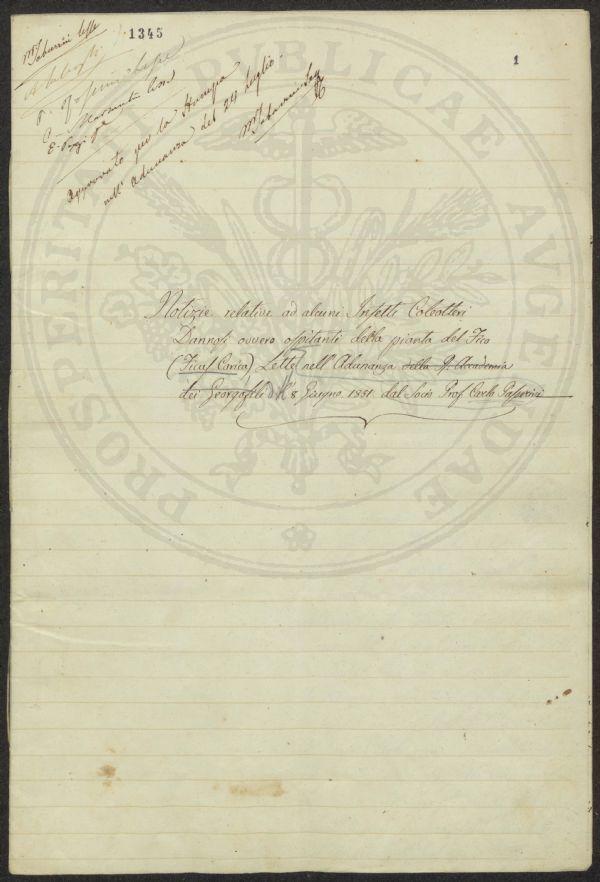 1345
1
Approvato per la Stampa
nell'Adunanza del 29 Luglio.
Notizie relative ad alcuni Insetti Coleotteri
Dannosi ovvero ospitanti della pianta del Fico
(Ficus Carica) Lette nell'Adunanza della R. Accademia
dei Georgofili dell' 8 Giugno 1851 dal Socio Prof. Carlo Passerini
PROSPERITATI PUBLICAE AUGENDAE